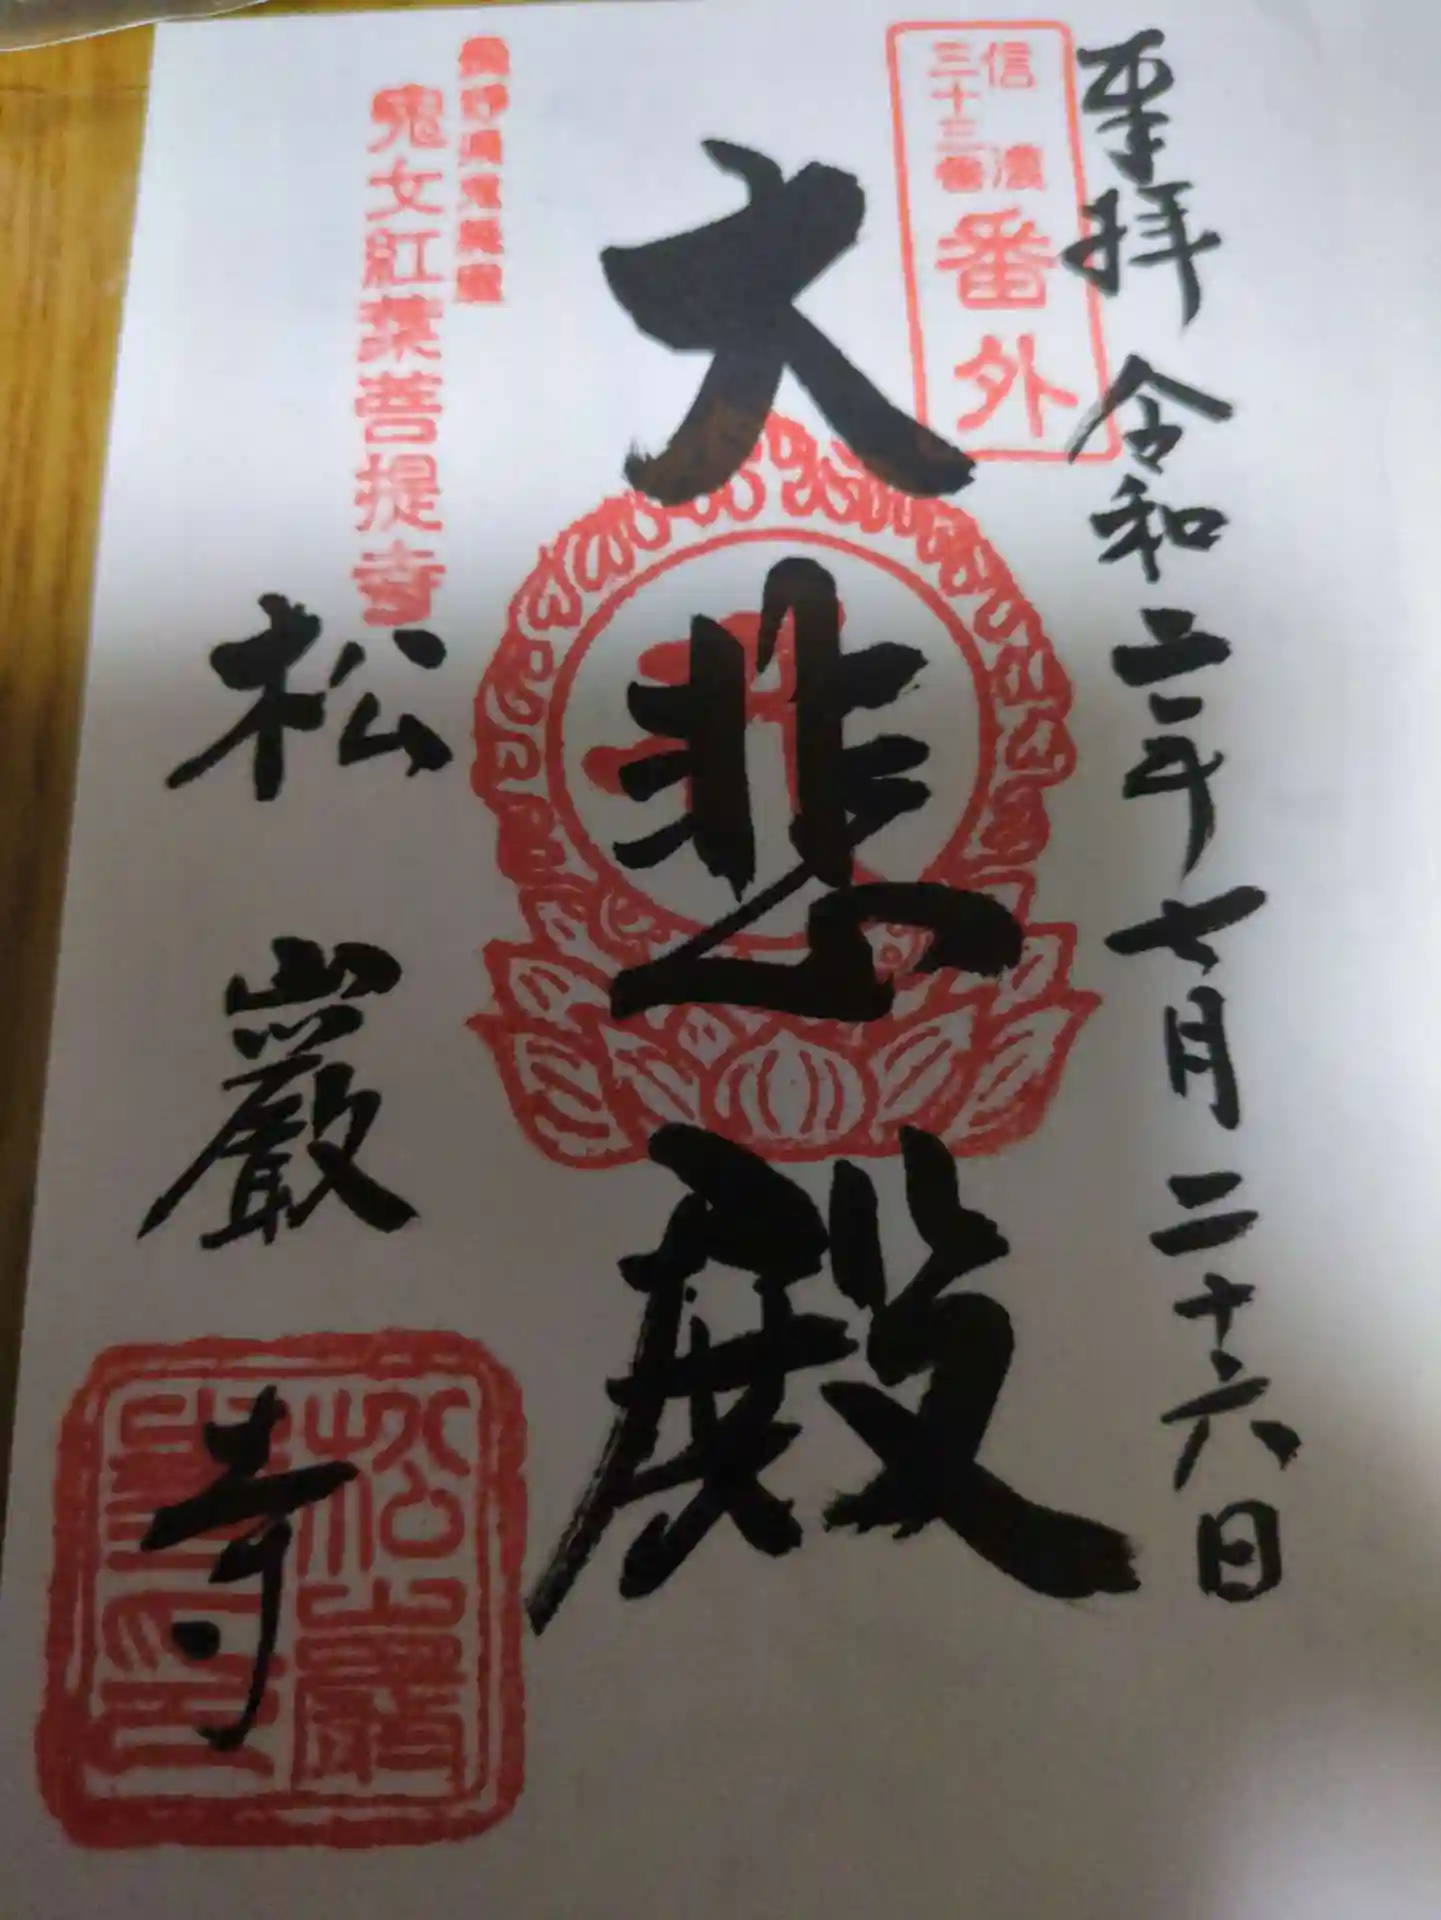 重拝 令和二年七月二十六日
信濃
三十三番
番外
大悲殿
長野県鬼無里
鬼女紅葉菩提寺
松巖寺
松巖
寺印